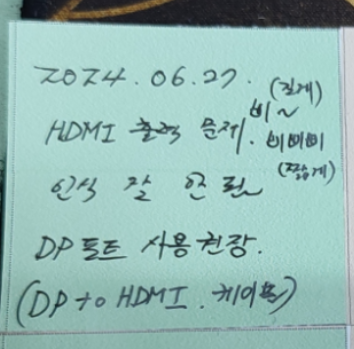 2024.06.27. (길게)
비~
HDMI 출력 문제. 비비비
인식 잘 안 됨 (짧게)
DP 포트 사용 권장.
(DP to HDMI. 케이블)